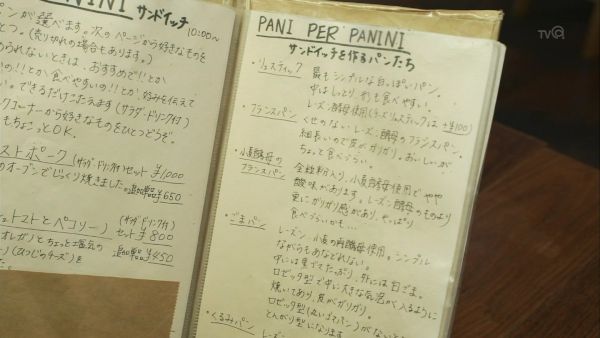 PANINI サンドイッチ
10:00〜
パンが選べます。次のページから好きなものを
とつ。(売り切れの場合もあります。)
められないときは、おすすめで!!とか
いの!!とか食べやすいの!!とか好みを伝えて
い。できるだけこたえます(サラダ・ドリンク付)
クコーナーから好きなものをひとつどうぞ。
もちょこっとOK.
ストポーク (サラダ・ドリンク付)セット ¥1000
のオーブンでじっくり焼きました。追加単品¥650
ュトマトとペコリーノ (サラダ・ドリンク付)
セット ¥800
オレガノとちょっと塩気の 追加単品¥450
ーノ(ひつじのチーズ)を
TVQ
PANI PER PANINI
サンドイッチを作るパンたち
・リュスティック 最もシンプルな白っぽいパン。
中はしっとり、耳も食べやすい。
レーズン酵母使用(チーズリュスティックは+¥100)
・フランスパン くせのないレーズン酵母のフランスパン。
細長いので皮がガリガリ。おいしいが
ちょっと食べづらい。
・小麦酵母の 全粒粉入り、小麦酵母使用でやや
フランスパン 酸味があります。レーズン酵母のものより
更にガリガリ感があり、やっぱり
食べづらいかも…
・ごまパン レーズン・小麦の両酵母使用。シンプル
ながらもあなどれない。
中には黒ゴマたっぷり、外には白ごま。
ロゼッタ型で中に大きな気泡が入るように
焼いてあり、皮がガリガリ。
ロゼッタ型(丸いゴマパン)がないと
とんがり型になります
・くるみパン レーズン